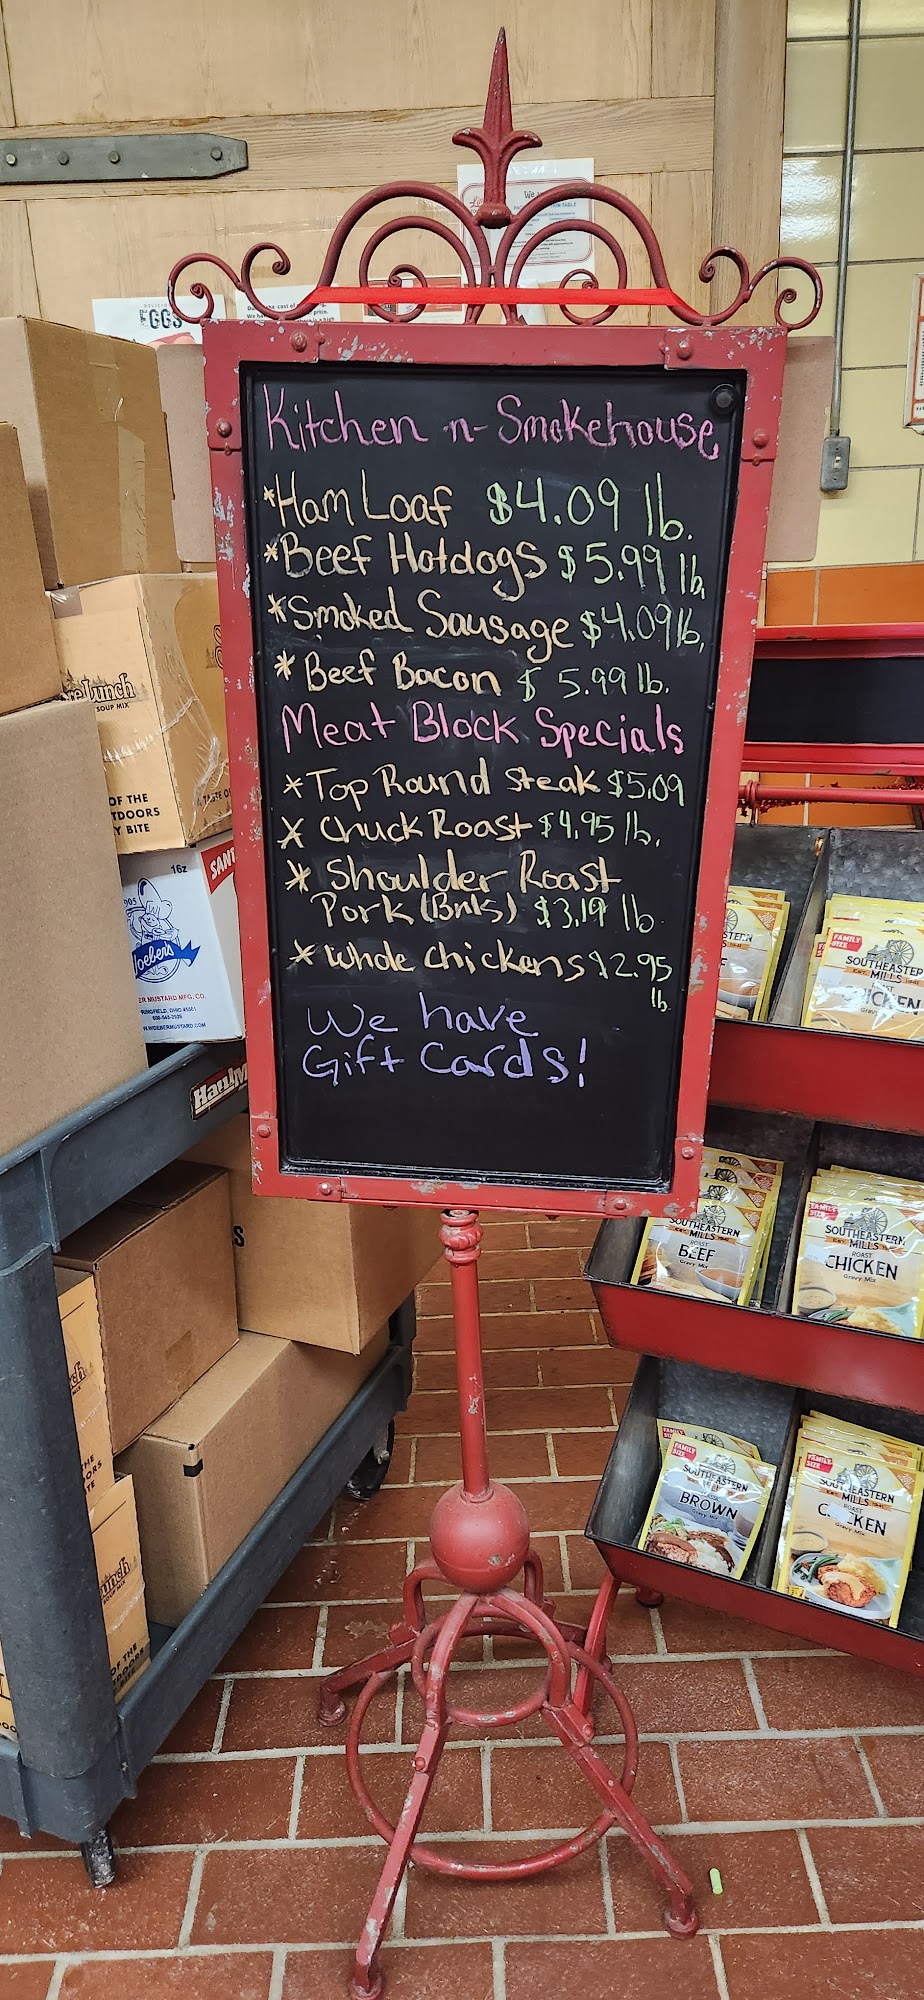 EGGS
Kitchen -n- Smokehouse
*Ham Loaf $4.09 lb.
*Beef Hotdogs $5.99 lb.
*Smoked Sausage $4.09 lb.
*Beef Bacon $5.99 lb.
Meat Block Specials
*Top Round Steak $5.09
*Chuck Roast $4.95 lb.
*Shoulder Roast
Pork (Bnls) $3.19 lb.
*Whole Chickens $2.95
lb.
We have
Gift Cards!
Lunch
SOUP MIX
OF THE
BITE
16z
MUSTARD MFG. CO.
SOUTHEASTERN
MILLS
FAMILY
SIZE
SOUTHEASTERN
MILLS
ROAST
BEEF
Gravy Mix
SOUTHEASTERN
MILLS
ROAST
CHICKEN
Gravy Mix
FAMILY
SIZE
SOUTHEASTERN
MILLS
BROWN
Gravy Mix
FAMILY
SIZE
SOUTHEASTERN
MILLS
ROAST
Gravy Mix